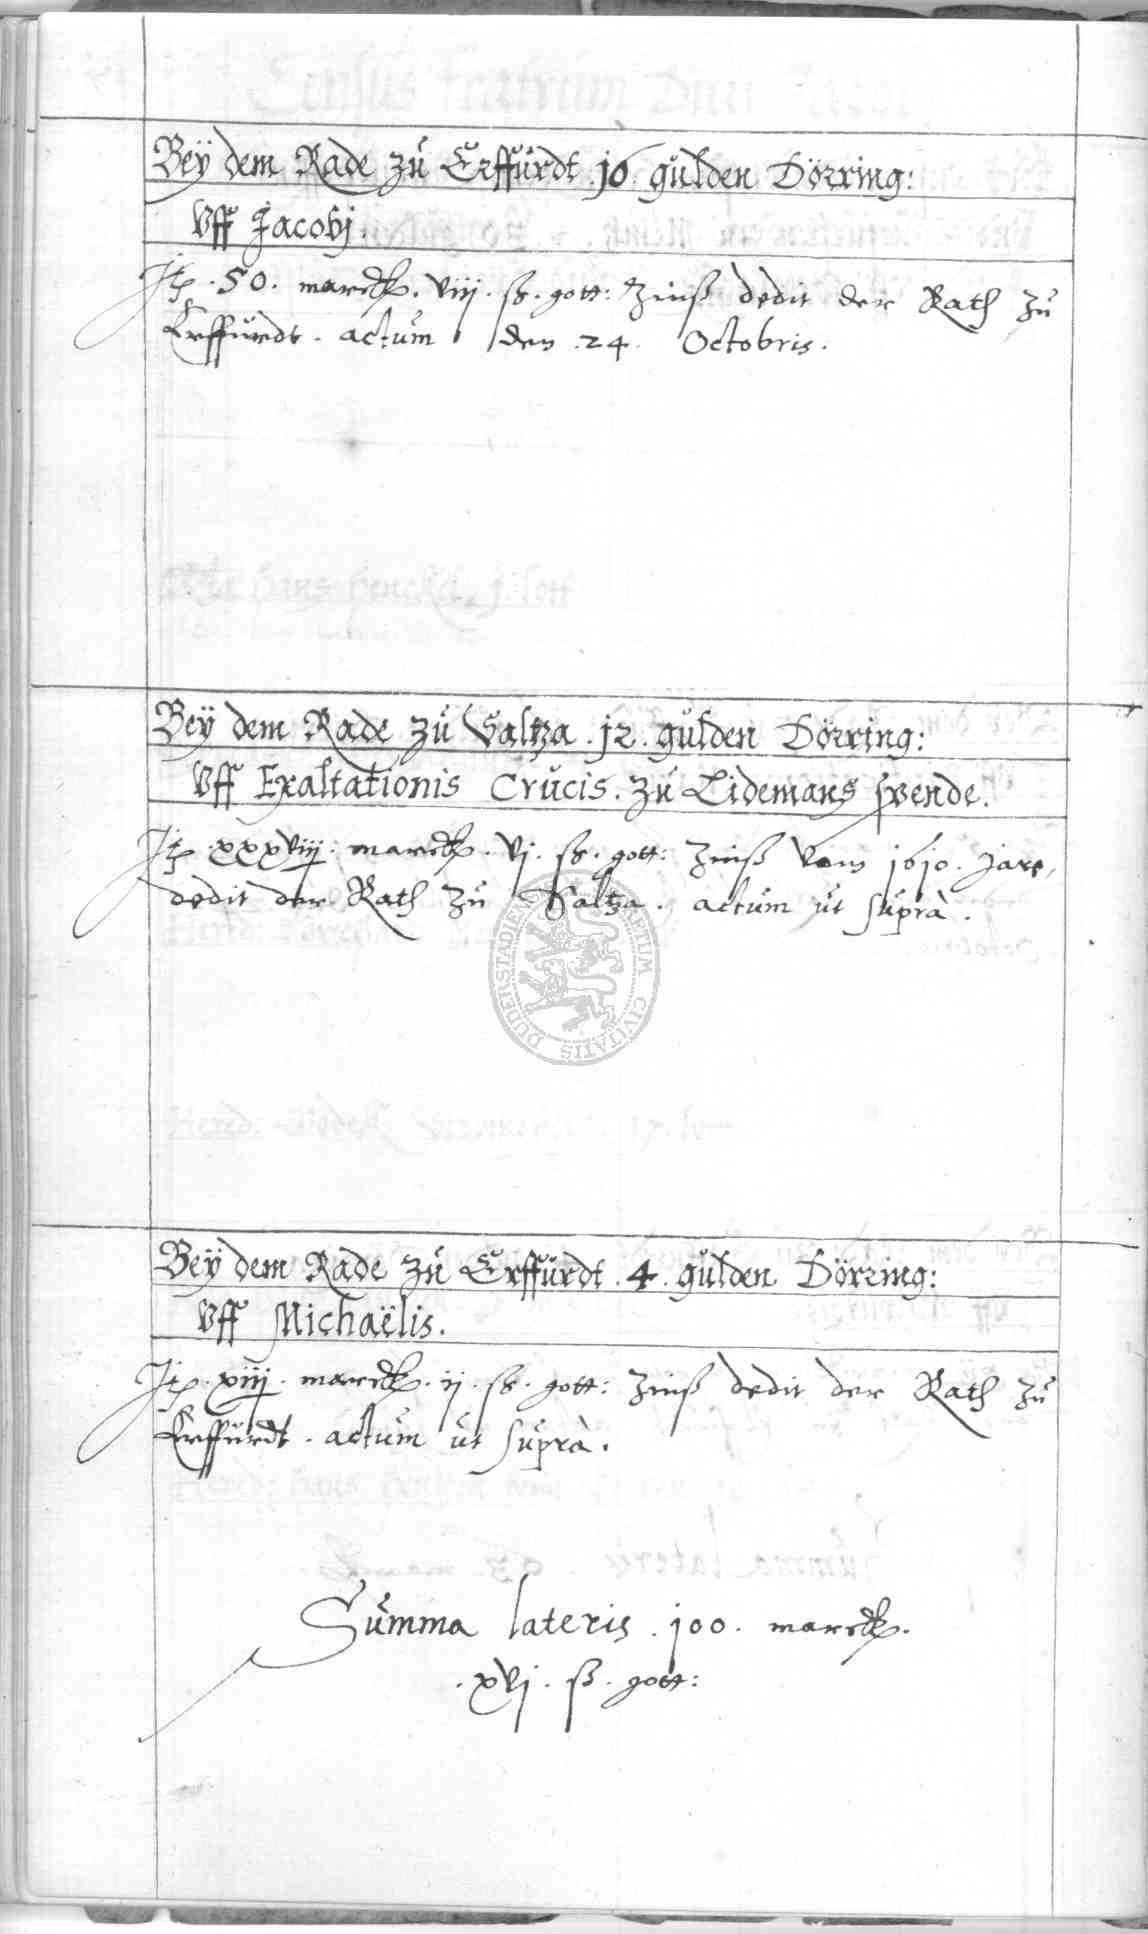 Beÿ dem Rade zu Erffurdt .16. gulden Dörring:
Vff Jacobj.
Itp .50. marck. viij. ß. gott: Zinß dedit der Rath zu
Erffurdt. actum den .24. Octobris.
Beÿ dem Rade zu Saltza .12. gulden Dörring:
Vff Exaltationis Crucis. zu Lidemans spende.
Itp .xxxviij. marck. vj. ß. gott: Zinß vom 1610. Jare,
dedit der Rath zu Saltza. actum ut suprà.
DUDERSTADIENSIS CIVITATIS
Beÿ dem Rade zu Erffurdt .4. gulden Dörring:
Vff Michaëlis.
Itp .xiij. marck. ij. ß. gott: Zinß dedit der Rath zu
Erffurdt. actum ut suprà.
Summa lateris .100. marck.
.xvj. ß. gott: